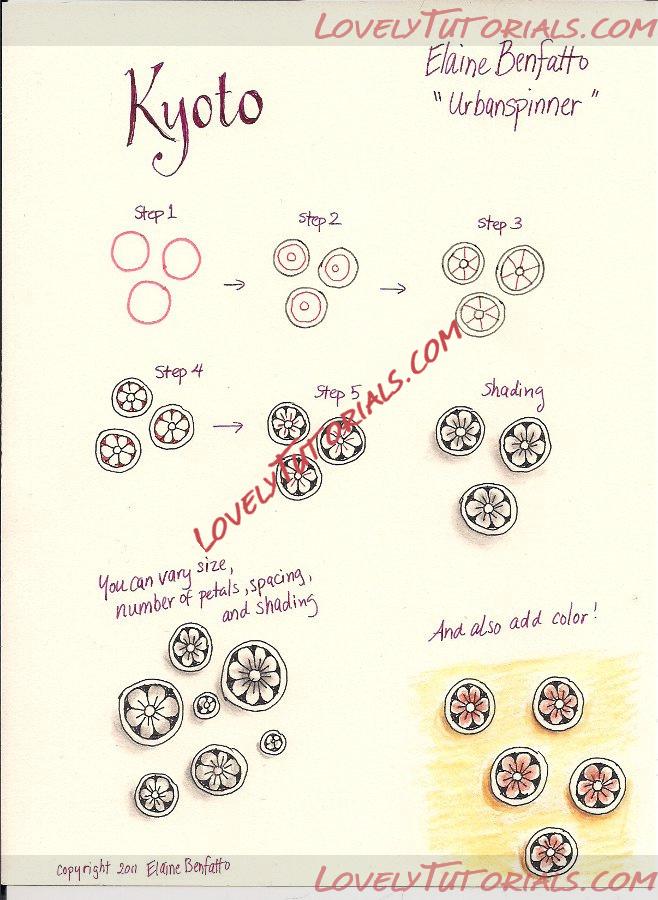 LOVELYTUTORIALS.COM
Elaine Benfatto
"Urbanspinner"
Kyoto
Step 1
Step 2
Step 3
Step 4
Step 5
Shading
LOVELYTUTORIALS.COM
You can vary size,
number of petals, spacing,
and shading
And also add color!
Copyright 2011 Elaine Benfatto
LOVELYTUTORIALS.COM